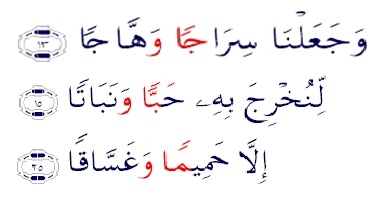 وَجَعَلْنَا سِرَاجًا وَهَّاجًا ١٣
لِّنُخْرِجَ بِهِۦ حَبًّا وَنَبَاتًا ١٥
إِلَّا حَمِيمًا وَغَسَّاقًا ٢٥